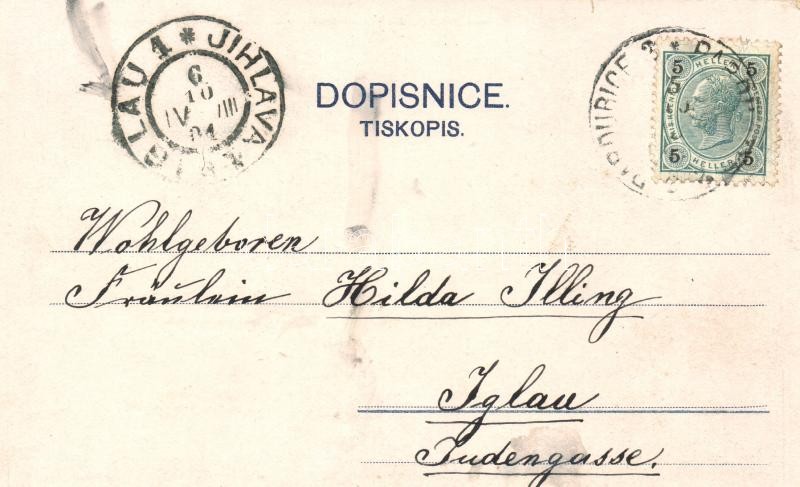 IGLAU 1 * JIHLAVA 1
6
10
IV
04
DOPISNICE.
TISKOPIS.
PARDUBICE 3 *
5 HELLER 5
5 HELLER 5
Wohlgeboren
Fräulein Hilda Illing
Iglau
Judengasse.